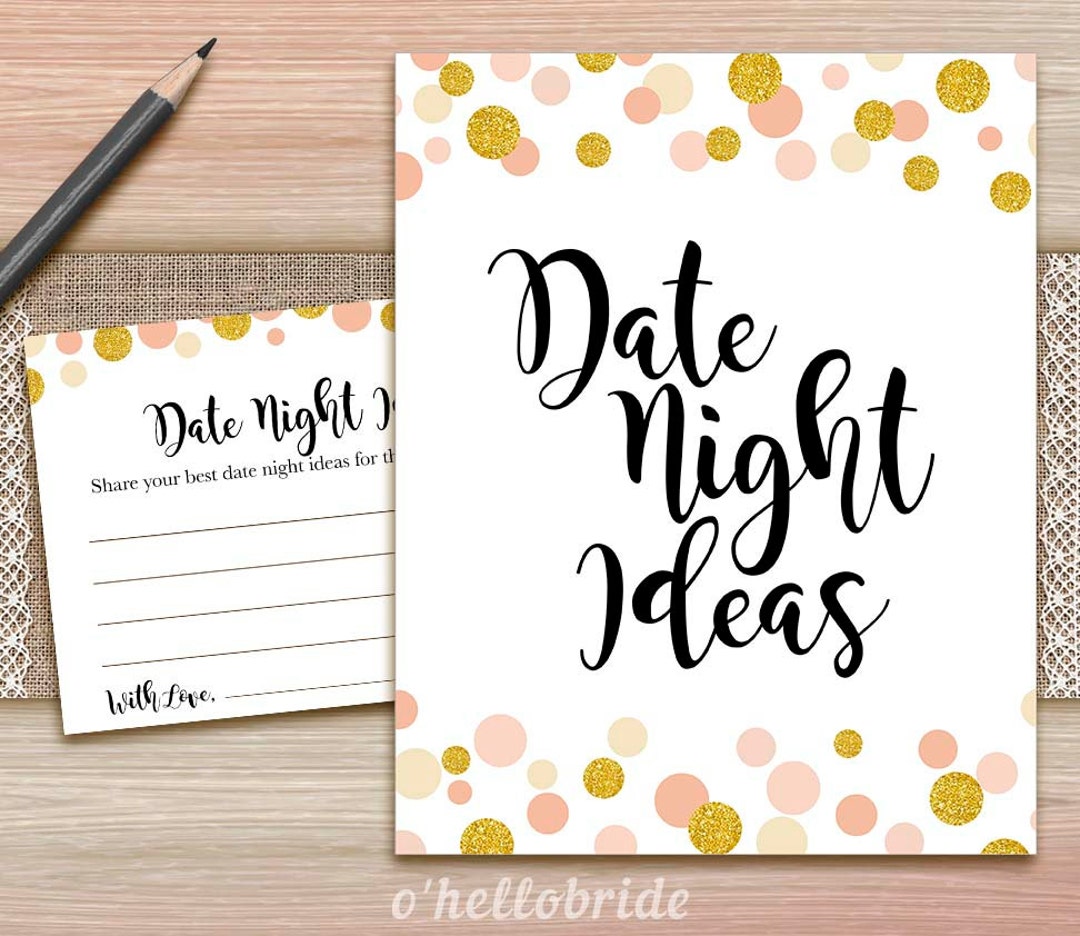 Date Night
Share your best date night ideas for
With Love,
Date
Night
Ideas
o'hellobride